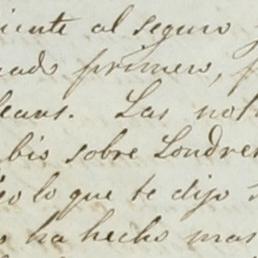 iente al seguro
uado primero, p
leans. Las noti
bio sobre Londres
eo lo que te dijo
ha hecho mas